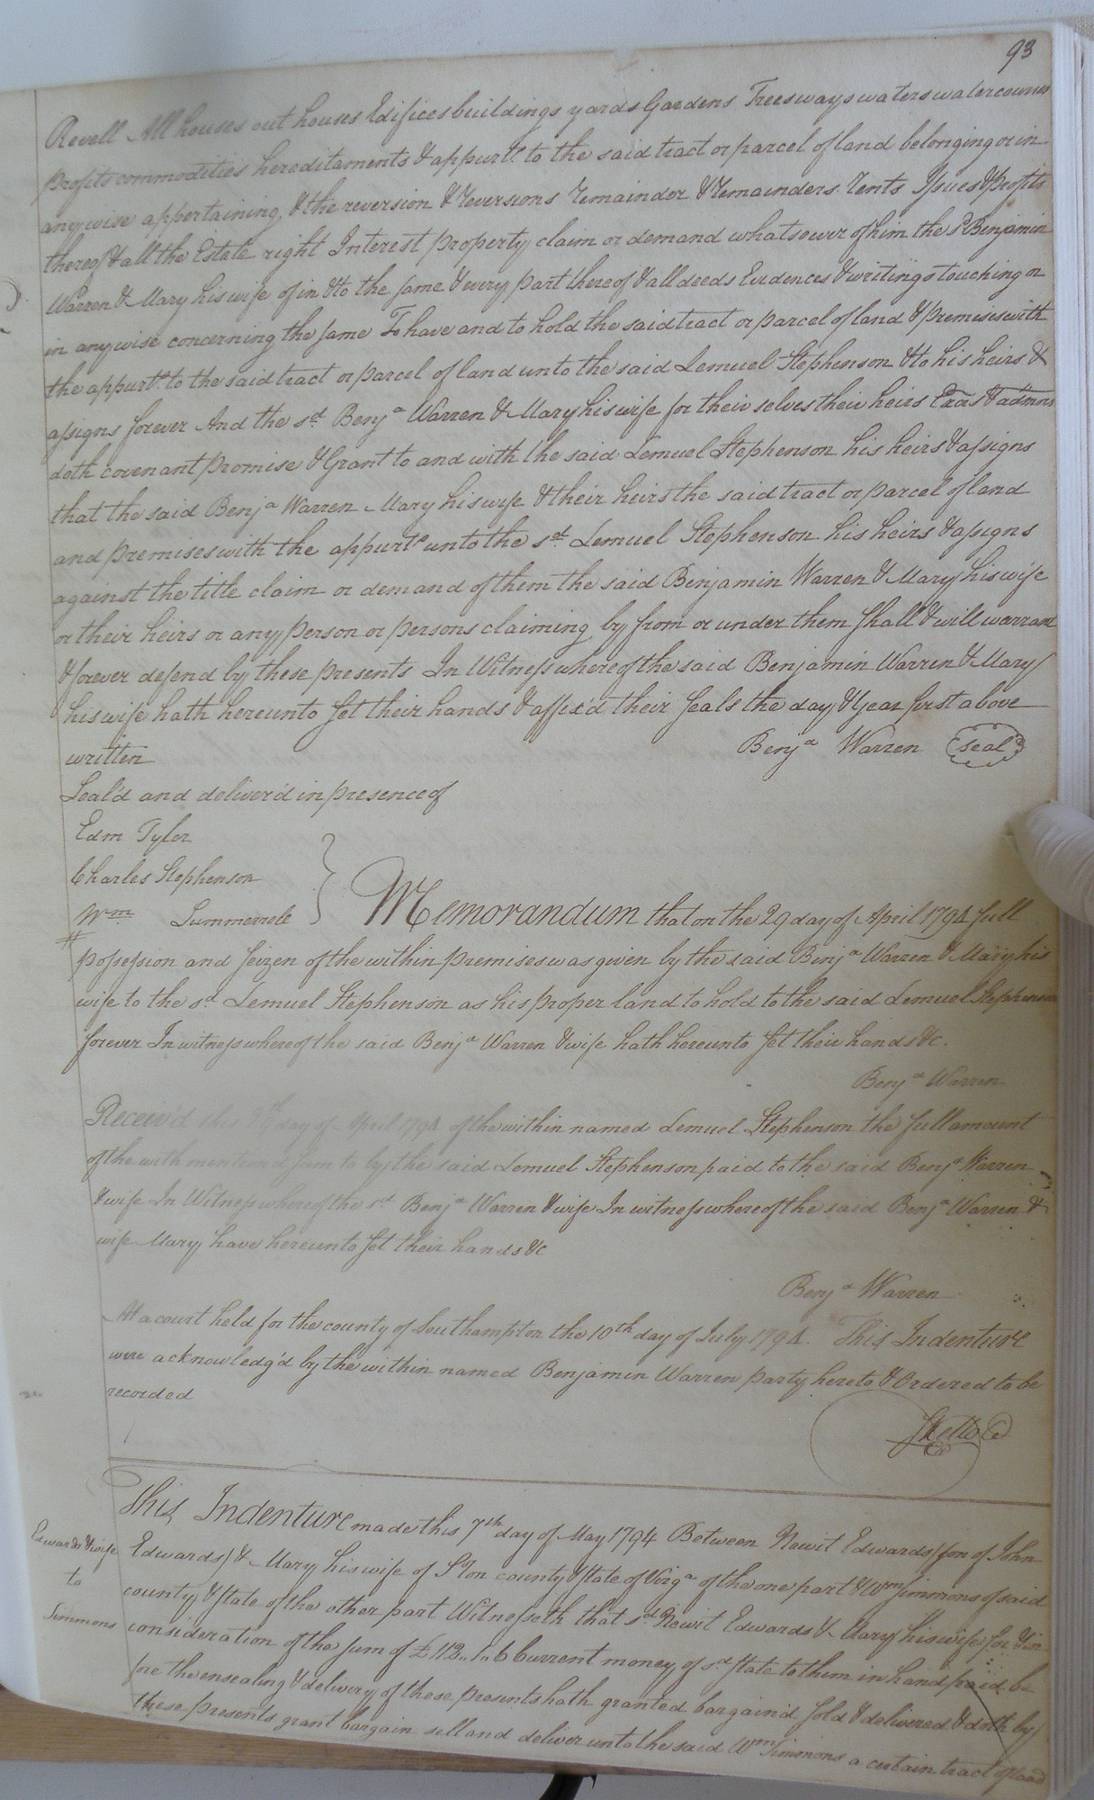 93
Revell All houses out houses Edifices buildings yards Gardens Trees ways waters watercourses
profits commodities hereditaments & appurts to the said tract or parcel of land belonging or in
anywise appertaining, & the reversion & reversions remainder & remainders rents Issues & profits
thereof & all the Estate right Interest property claim or demand whatsoever of him the sd Benjamin
Warren & Mary his wife of in & to the same & every part thereof & all deeds Evidences & writings touching or
in anywise concerning the same To have and to hold the said tract or parcel of land & premises with
the appurts to the said tract or parcel of land unto the said Lemuel Stephenson & to his heirs &
assigns forever And the sd Benja Warren & Mary his wife for their selves their heirs Exrs & admors
doth covenant promise & Grant to and with the said Lemuel Stephenson his heirs & assigns
that the said Benja Warren Mary his wife & their heirs the said tract or parcel of land
and premises with the appurts unto the sd Lemuel Stephenson his heirs & assigns
against the title claim or demand of them the said Benjamin Warren & Mary his wife
or their heirs or any person or persons claiming by from or under them shall & will warrant
& forever defend by these presents In Witness whereof the said Benjamin Warren & Mary
his wife hath hereunto set their hands & affix'd their seals the day & Year first above
written Benja Warren seal
Seal'd and deliver'd in presence of
Edm Tyler
Charles Stephenson
Wm Summerrele
Memorandum that on the 29 day of April 1794 full
possession and seizen of the within premises was given by the said Benja Warren & Mary his
wife to the sd Lemuel Stephenson as his proper land to hold to the said Lemuel Stephenson
forever In witness whereof the said Benja Warren & wife hath hereunto set their hands &c.
Benja Warren
Receev'd the day of April 1794 of the within named Lemuel Stephenson the full amount
of the with mention'd sum to by the said Lemuel Stephenson paid to the said Benja Warren
& wife In Witness whereof the sd Benja Warren & wife In witness whereof the said Benja Warren &
wife Mary have hereunto set their hands &c
Benja Warren
At a court held for the county of Southampton the 10th day of July 1794. This Indenture
were acknowledg'd by the within named Benjamin Warren party hereto & Ordered to be
recorded
Edwards & wife
to
Simmons
This Indenture made this 7th day of May 1794 Between Newit Edwards (son of John
Edwards) & Mary his wife of Ston county & state of Virga of the one part & Wm Simmons of said
county & state of the other part Witnesseth that sd Newit Edwards & Mary his wife for & in
consideration of the sum of £112..1..6 Current money of sd state to them in hand paid be
fore the ensealing & delivery of these presents hath granted bargain'd sold & delivered & doth by
these presents grant bargain sell and deliver unto the said Wm Simmons a certain tract of land